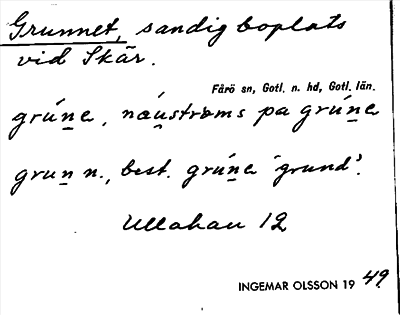 Grunnet, sandig boplats
vid Skär.
Fårö sn, Gotl. n. hd, Gotl. län.
grúṉe, náu̱stroms pa grúṉe
gruṉ n., best. grúṉe 'grund'.
Ullahau 12
INGEMAR OLSSON 19 49